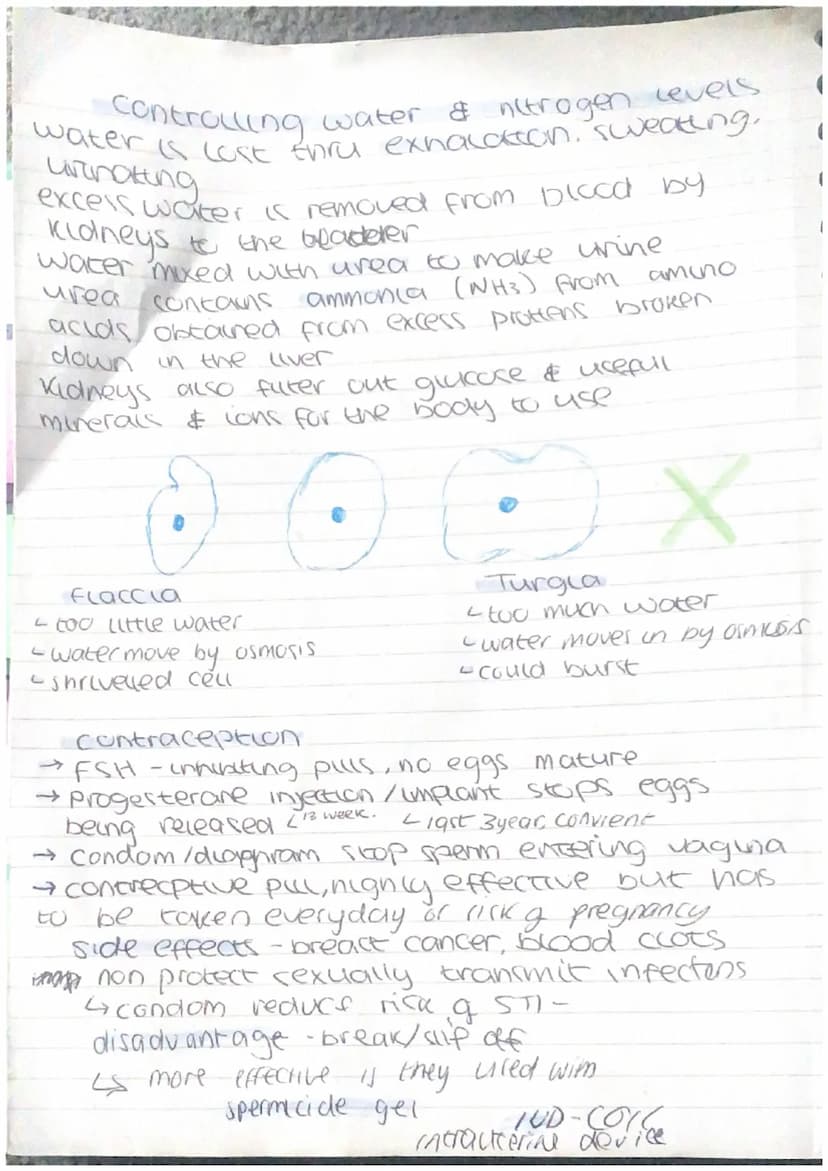 controlling water & nitrogen levels
water is lost thru exhalation, sweating,
urinating
excess water is removed from blood by
kidneys to the bladder
water mixed with urea to make urine
urea contains ammonia (NH3) from amino
acids obtained from excess protiens broken
down in the liver
kidneys also filter out glucose & useful
minerals & ions for the body to use
Flaccid
Turgid
↳ too little water
↳ too much water
↳ water move by osmosis
↳ water moves in by osmosis
↳ shrivelled cell
↳ could burst
contraception
→ FSH - inhibiting pills, no eggs mature
→ Progesterone injection / implant stops eggs
being released ↳ 13 week. ↳ last 3year, convient
→ condom / diaphram stop sperm entering vagina
→ contrecptive pill, highly effective but has
to be taken everyday or risk of pregnancy
side effects - breast cancer, blood clots
non protect sexually transmit infectons
↳ condom reducs risk of STI -
disadvantage - break/slip off
↳ more effective is they used with
spermicide gel
IUD - COIL
intrauterine device